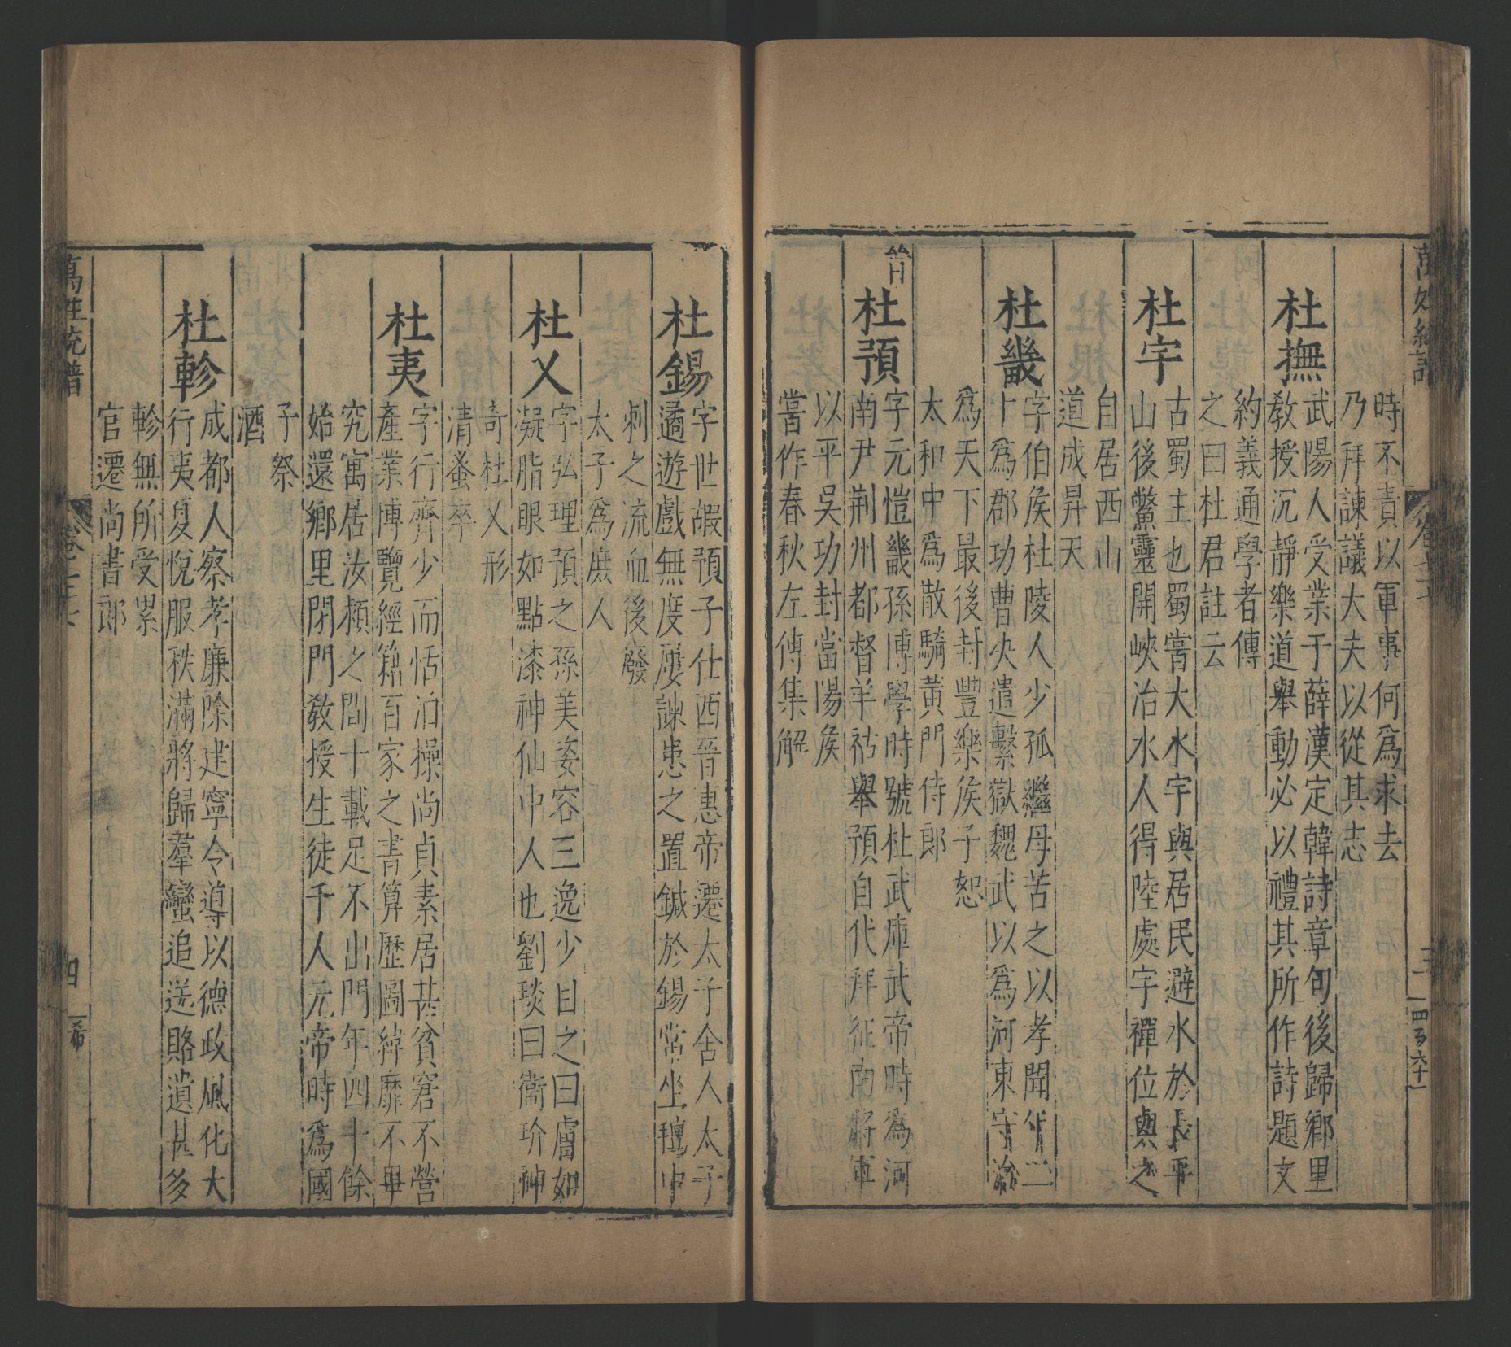 時不責以軍事何爲求去
乃拜諫議大夫以從其志
杜撫
武陽人受業于薛漢定韓詩章句後歸鄉里
敎授沉靜樂道舉動必以禮其所作詩題文
約義通學者傳
之曰杜君註云
杜宇
古蜀主也蜀嘗大水宇與居民避水於長平
山後鱉靈開峽治水人得陸處宇禪位與之
自居西山
道成昇天
杜畿
字伯侯杜陵人少孤繼母苦之以孝聞年二
十爲郡功曹決遣繫獄魏武以爲河東守治
爲天下最後封豐樂侯子恕
太和中爲散騎黃門侍郎
晉
杜預
字元愷畿孫博學時號杜武庫武帝時爲河
南尹荆州都督羊祜舉預自代拜征南將軍
以平吳功封當陽侯
嘗作春秋左傳集解
杜錫
字世嘏預子仕西晉惠帝遷太子舍人太子
遹遊戲無度屢諫患之置鍼於錫常坐氊中
刺之流血後廢
太子爲庶人
杜乂
字弘理預之孫美姿容三逸少目之曰膚如
凝脂眼如點漆神仙中人也劉琰曰衞玠神
奇杜乂形
清蚤卒
杜夷
字行齊少而恬泊操尚貞素居甚貧窘不營
產業博覽經籍百家之書算歷圖緯靡不畢
究寓居汝潁之間十載足不出門年四十餘
始還鄉里閉門敎授生徒千人元帝時爲國
子祭
酒
杜軫
成都人察孝廉除建寧令導以德政風化大
行夷夏悅服秩滿將歸羣蠻追送賂遺甚多
軫無所受累
官遷尚書郎
萬姓統譜
四